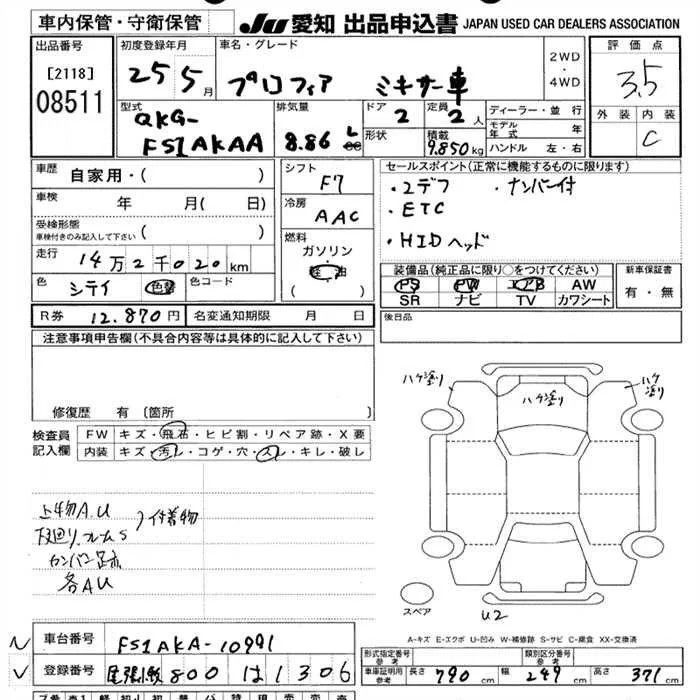 車内保管・守衛保管
JU 愛知 出品申込書 JAPAN USED CAR DEALERS ASSOCIATION
出品番号
[2118]
08511
初度登録年月
25 5 月
車名・グレード
プロフィア ミキサー車
2WD
・
4WD
評価点
3.5
外装 内装
C
型式
QKG-
FS1AKAA
排気量
8.86 L
cc
ドア
2
定員
2 人
形状
積載
9.850 kg
ディーラー・並行
モデル年式 年
ハンドル 左・右
車歴 自家用・( )
車検 年 月( 日)
受検形態
車検付きのみ記入して下さい ( )
走行 14万2千020km
色 シテイ 色替 色コード
シフト
F7
冷房
AAC
燃料
ガソリン
・
軽・油
( )
セールスポイント(正常に機能するものに限ります)
・2デフ ・ナンバー付
・ETC
・HIDヘッド
装備品(純正品に限り○をつけてください)
PS PW エアB AW
SR ナビ TV カワシート
新車保証書
有・無
R券 12.870円 名変通知期限 月 日
後日品
注意事項申告欄(不具合内容等は具体的に記入して下さい)
修復歴 有 〔箇所
検査員
記入欄
FW キズ・飛石・ヒビ割・リペア跡・X要
内装 キズ・汚レ・コゲ・穴・スレ・キレ・破し
上物A.U
下回り.フレームS )付着物
カンバン跡
各AU
ハケ塗り
ハケ塗り
ハケ塗り
スペア
U2
A-キズ E-エクボ U-凹み W-補修跡 S-サビ C-腐食 XX-交換済
車台番号 FS1AKA-10991
登録番号 尾張小牧 800 は 1306
形式指定番号
参考
類別区分番号
参考
車庫証明用
参考
長さ 790 cm 幅 249 cm 高さ 371 cm